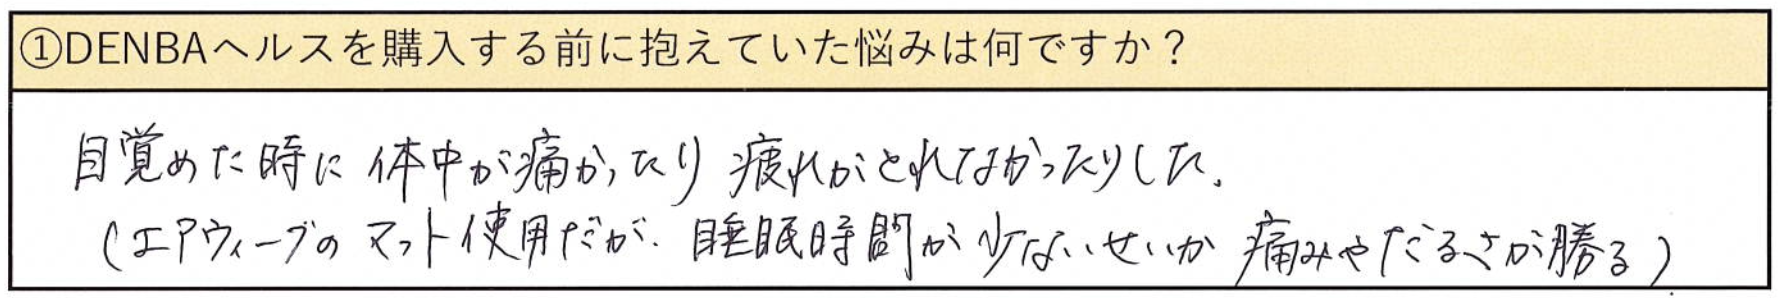 ①DENBAヘルスを購入する前に抱えていた悩みは何ですか？
目覚めた時に体中が痛かったり疲れがとれなかったりした。
(エアウィーブのマット使用だが、睡眠時間が少ないせいか痛みやだるさが勝る)